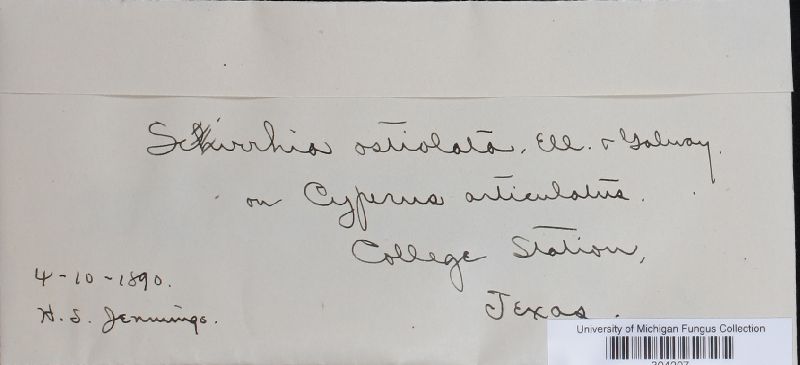 Scirrhia ostiolata, Ell. & Galway.
on Cyperus articulatus.
College Station,
Texas.
4-10-1890.
H. S. Jennings.
University of Michigan Fungus Collection